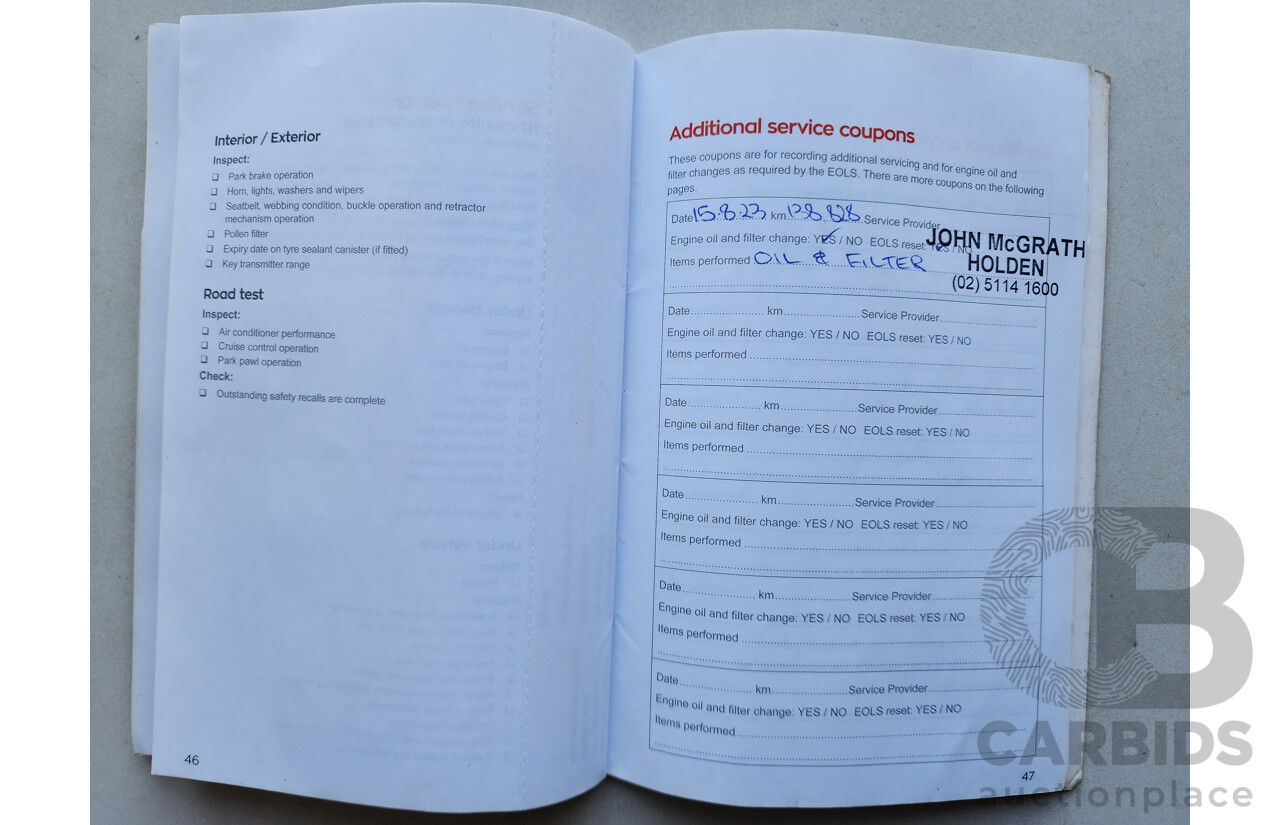 Interior / Exterior
Inspect:
❏ Park brake operation
❏ Horn, lights, washers and wipers
❏ Seatbelt, webbing condition, buckle operation and retractor
mechanism operation
❏ Pollen filter
❏ Expiry date on tyre sealant canister (if fitted)
❏ Key transmitter range
Road test
Inspect:
❏ Air conditioner performance
❏ Cruise control operation
❏ Park pawl operation
Check:
❏ Outstanding safety recalls are complete
46
Additional service coupons
These coupons are for recording additional servicing and for engine oil and
filter changes as required by the EOLS. There are more coupons on the following
pages.
Date 15.8.23 km 138,828 Service Provider
Engine oil and filter change: YES / NO EOLS reset: YES / NO
JOHN McGRATH
HOLDEN
(02) 5114 1600
Items performed OIL & FILTER
Date km Service Provider
Engine oil and filter change: YES / NO EOLS reset: YES / NO
Items performed
Date km Service Provider
Engine oil and filter change: YES / NO EOLS reset: YES / NO
Items performed
Date km Service Provider
Engine oil and filter change: YES / NO EOLS reset: YES / NO
Items performed
Date km Service Provider
Engine oil and filter change: YES / NO EOLS reset: YES / NO
Items performed
Date km Service Provider
Engine oil and filter change: YES / NO EOLS reset: YES / NO
Items performed
47
CB
CARBIDS
auctionplace